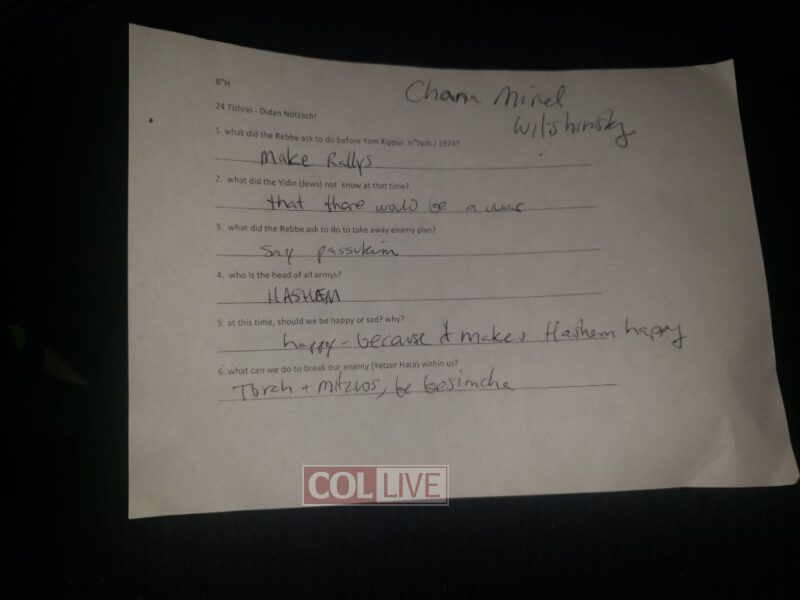 B"H
24 Tishrei - Didan Notzach!
Wilishinsky
1. what did the Rebbe ask to do before Yom Kippur / 1974?
Make Rallys
2. what did the Yidin (Jews) not know at that time?
that there would be a war
3. what did the Rebbe ask to do to take away enamy plan?
Say passukim
4. who is the head of all armys?
HASHEM
5. at this time, should we be happy or sad? why?
happy - because it makes Hashem happy
6. what can we do to break our enemy (Yetzer Hara) within us?
Torah + mitzvos, be besimcha
COL LIVE